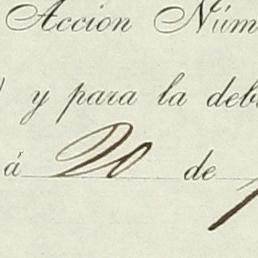 Acción Núm
y para la deb
á 20 de